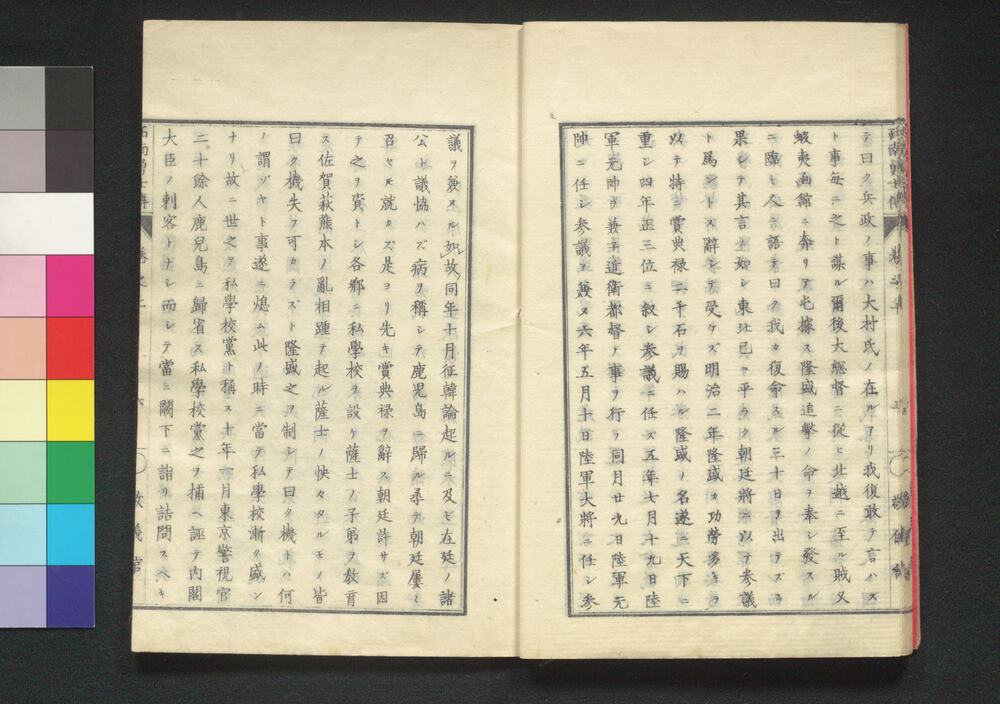 テ曰ク兵政ノ事ハ大村氏ノ在ルアリ我復敢テ言ハズ
ト事毎ニ之ト謀ル爾後大總督ニ從ヒ北越ニ至ル賊又
蝦夷函館ニ奔リ屯據ス隆盛追撃ノ命ヲ奉シ發スル
ニ臨ミ人ニ語テ曰ク我カ復命スル三十日ヲ出テズト
果シテ其言ノ如シ東北已ニ平ラク朝廷將ニ以テ參議
ト爲ントス辭シテ受ケズ明治二年隆盛カ功勞多キヲ
以テ特ニ賞典禄二千石ヲ賜ハル隆盛ノ名遂ニ天下ニ
重シ四年正三位ニ叙シ參議ニ任ズ五年七月十九日陸
軍元帥ヲ兼子近衛都督ノ事ヲ行フ同月廿九日陸軍元
帥ニ任シ參議ヲ兼ヌ六年五月十日陸軍大將ニ任シ參
議ヲ兼スル如故同年十月征韓論起ルニ及ビ在廷ノ諸
公ト議協ハズ病ヲ稱シテ鹿児島ニ歸ル尋テ朝廷屢ミ
召セモ就カズ是ヨリ先キ賞典禄ヲ辭ス朝廷許サズ因
テ之ヲ資トシ各郷ニ私學校ヲ設ケ薩士ノ子弟ヲ教育
ス佐賀萩熊本ノ亂相踵テ起ル薩士ノ怏々タルモノ皆
曰ク機失フ可カラズト隆盛之ヲ制シテ曰ク機トハ何
ノ謂ゾヤト事遂ニ熄ム此ノ時ニ當テ私學校漸ク盛ン
ナリ故ニ世之ヲ私學校黨ト稱ス十年一月東京警視官
二十餘人鹿兒島ニ歸省ス私學校黨之ヲ捕ヘ誣テ内閣
大臣ノ刺客トナシ而シテ當ニ闕下ニ詣リ詰問スヘキ